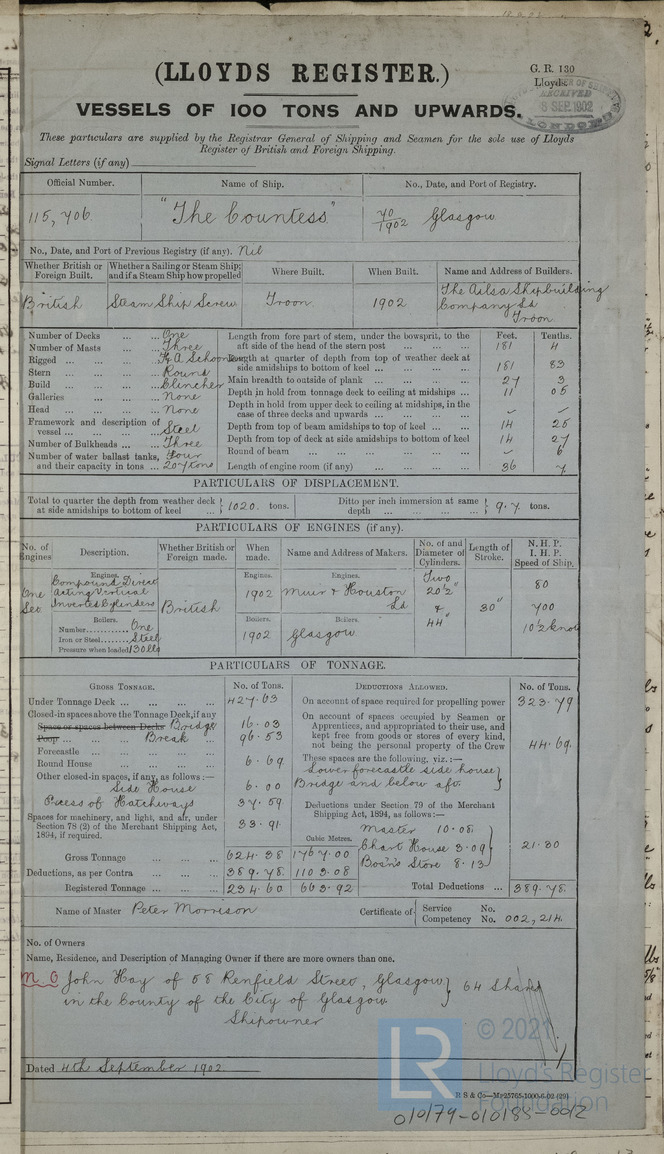 (LLOYDS REGISTER.)
G. R. 130
Lloyds.
RECEIVED
SEP. 1902
LONDON
VESSELS OF 100 TONS AND UPWARDS.
These particulars are supplied by the Registrar General of Shipping and Seamen for the sole use of Lloyds
Register of British and Foreign Shipping.
Signal Letters (if any)
Official Number. Name of Ship. No., Date, and Port of Registry.
115,706. "The Countess" 70/1902 Glasgow
No., Date, and Port of Previous Registry (if any). Nil
Whether British or Foreign Built. Whether a Sailing or Steam Ship; and if a Steam Ship how propelled Where Built. When Built. Name and Address of Builders.
British Steam Ship Screw Troon 1902 The Ailsa Shipbuilding Company Ld Troon
Feet. Tenths.
Number of Decks ... ... One
Number of Masts ... ... Three
Rigged ... ... F. & A. Schooner
Stern ... ... Round
Build ... ... Clincher
Galleries ... ... None
Head ... ... None
Framework and description of vessel ... ... Steel
Number of Bulkheads ... Three
Number of water ballast tanks, and their capacity in tons ... Four 207 tons
Length from fore part of stem, under the bowsprit, to the aft side of the head of the stern post ... ... 181 4
Length at quarter of depth from top of weather deck at side amidships to bottom of keel ... ... 181 83
Main breadth to outside of plank ... ... 27 3
Depth in hold from tonnage deck to ceiling at midships ... 11 05
Depth in hold from upper deck to ceiling at midships, in the case of three decks and upwards ... ...
Depth from top of beam amidships to top of keel ... 14 25
Depth from top of deck at side amidships to bottom of keel 14 27
Round of beam ... ... 6
Length of engine room (if any) ... ... 36 7
PARTICULARS OF DISPLACEMENT.
Total to quarter the depth from weather deck at side amidships to bottom of keel ... 1020. tons. Ditto per inch immersion at same depth ... 9.7 tons.
PARTICULARS OF ENGINES (if any).
No. of Engines Description. Whether British or Foreign made. When made. Name and Address of Makers. No. of and Diameter of Cylinders. Length of Stroke. N. H. P. I. H. P. Speed of Ship.
Engines. Engines. Engines.
One Compound Direct Acting Vertical Inverted Cylinders British 1902 Muir & Houston Ld Two 20½" & 44" 30" 80 700 10½ knots
Boilers. Boilers. Boilers.
Number One
Iron or Steel Steel 1902 Glasgow
Pressure when loaded 130 lbs
PARTICULARS OF TONNAGE.
GROSS TONNAGE. No. of Tons.
Under Tonnage Deck ... ... 427.63
Closed-in spaces above the Tonnage Deck, if any
Space or spaces between Decks Bridge 16.03
Poop ... ... Break 96.53
Forecastle ... ...
Round House ... ... 6.69
Other closed-in spaces, if any, as follows:—
Side House 6.00
Excess of Hatchways 37.59
Spaces for machinery, and light, and air, under Section 78 (2) of the Merchant Shipping Act, 1894, if required. 33.91
Cubic Metres.
Gross Tonnage ... 624.38 1767.00
Deductions, as per Contra ... 389.78 1103.08
Registered Tonnage ... 234.60 663.92
DEDUCTIONS ALLOWED. No. of Tons.
On account of space required for propelling power 323.79
On account of spaces occupied by Seamen or Apprentices, and appropriated to their use, and kept free from goods or stores of every kind, not being the personal property of the Crew 44.69
These spaces are the following, viz.:—
Lower forecastle side house
Bridge and below aft.
Deductions under Section 79 of the Merchant Shipping Act, 1894, as follows:—
Master 10.08
Chart House 3.09
Bosn's Store 8.13
21.30
Total Deductions ... 389.78
Name of Master Peter Morrison Certificate of Service No. Competency No. 002,214.
No. of Owners
Name, Residence, and Description of Managing Owner if there are more owners than one.
M.O John Hay of 58 Renfield Street, Glasgow
in the County of the City of Glasgow 64 Shares
Shipowner
Dated 4th September 1902
R S & Co—Mp25765-1000-6-02 (29)
010179-010188-0012
LR © 2021
Lloyd's Register
Foundation